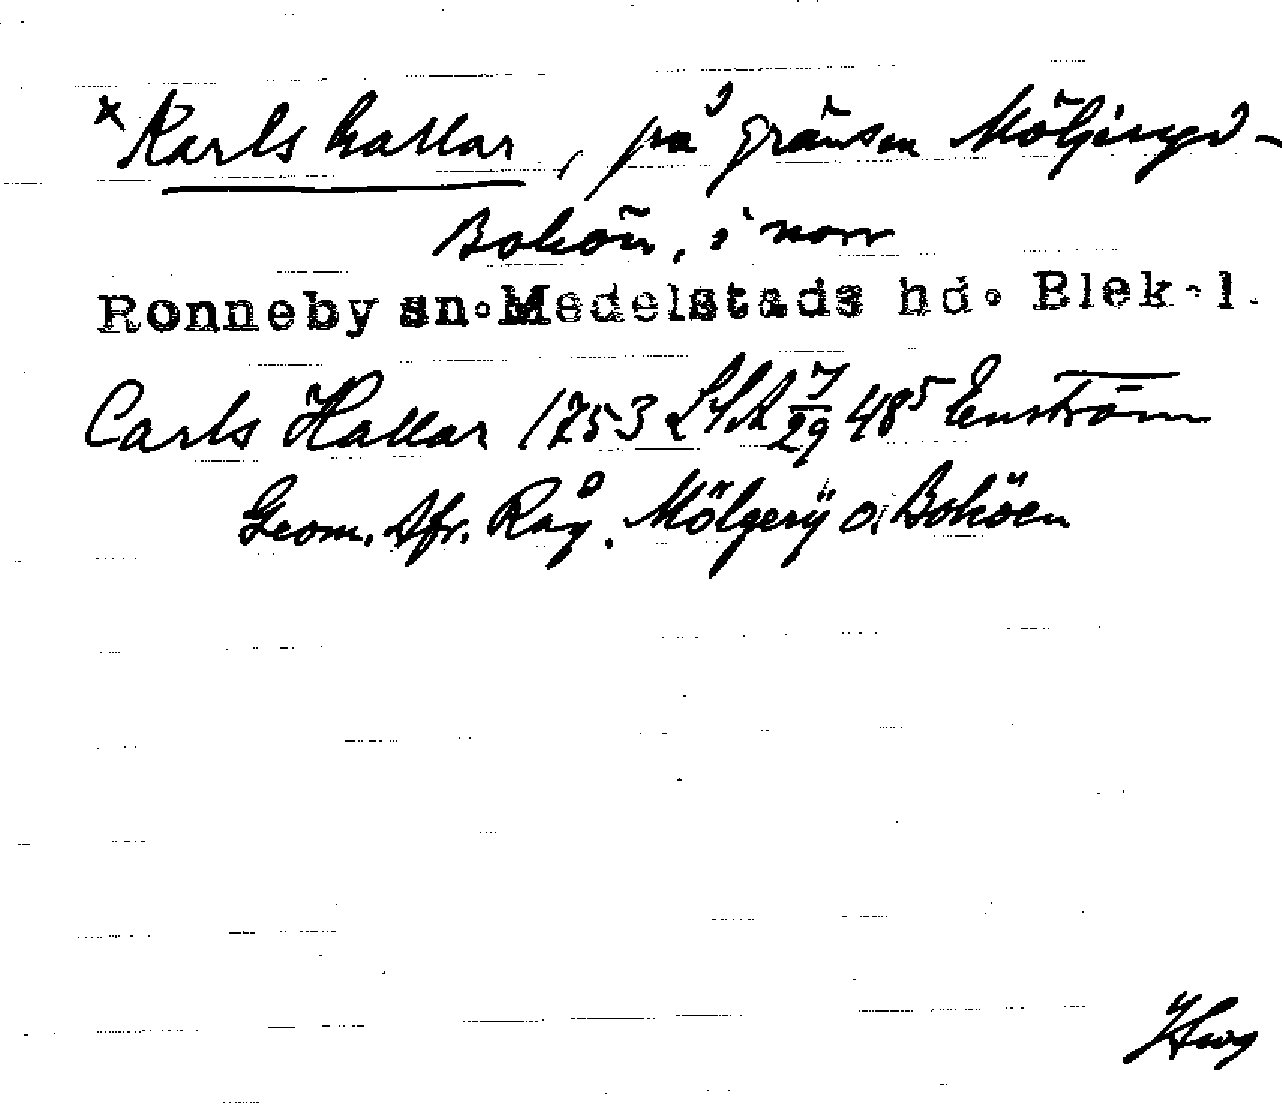 × Karls hallar, på gränsen Möljeryd-
Bokön, i norr
Ronneby sn. Medelstads hd. Blek. l.
Carls Hallar 1753 LSA 7/29 48⁵ Enström
Geom. Afr. Råg. Mölgerÿ o. Boköen